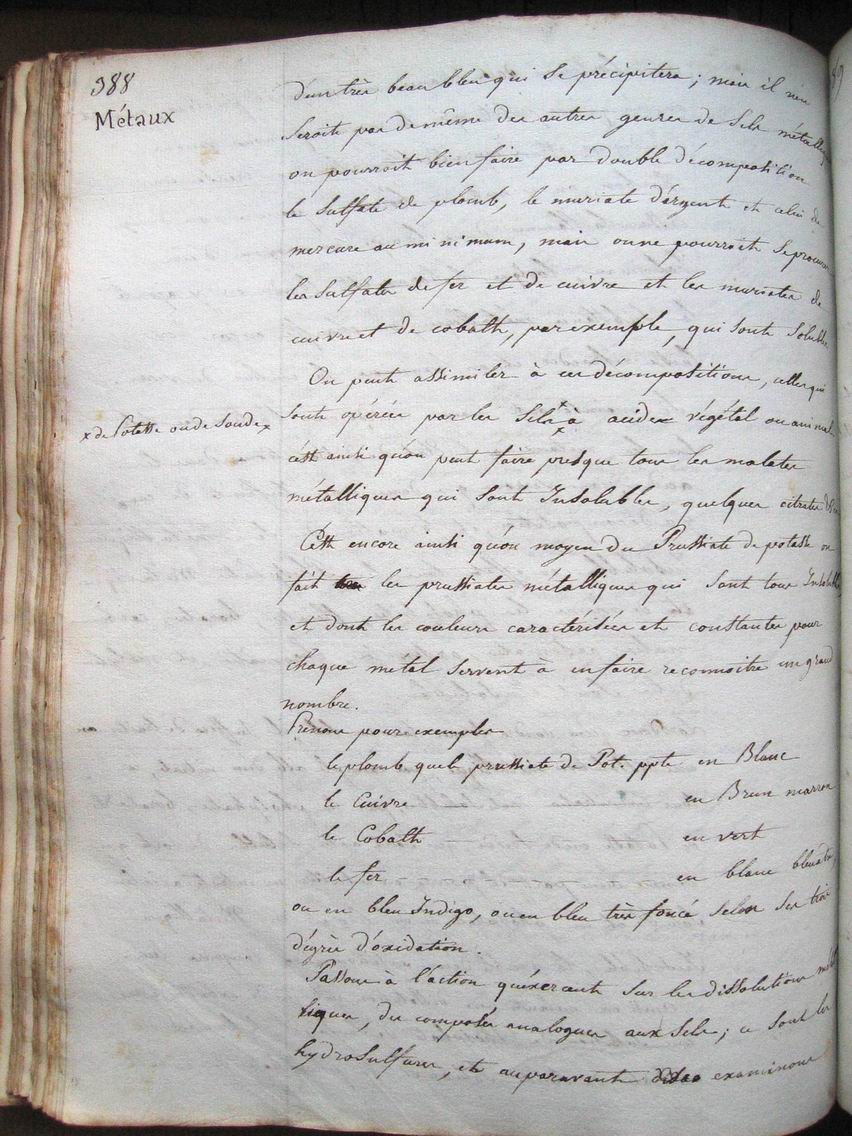 388
Métaux
d'un très beau bleu qui se précipitera ; mais il n'en
seroit pas de même des autres genres de Sels métalliques
on pourroit bien faire par double décomposition
le Sulfate de plomb, le muriate d'argent et celui de
mercure au minimum, mais on ne pourroit se procurer
les sulfates de fer et de cuivre et les muriates de
cuivre et de cobalth, par exemple, qui sont solubles
On peut assimiler à ces décompositions, celles qui
sont opérées par les Sels x à acides végétal ou animal
x de Potasse ou de Soude x
c'est ainsi qu'on peut faire presque tous les malates
métalliques qui sont Insolubles, quelques citrates
C'est encore ainsi qu'au moyen du Prussiate de potasse on
fait les prussiates métalliques qui sont tous Insolubles
et dont les couleurs caractérisées et constantes pour
chaque métal servent à en faire reconnoitre un grand
nombre.
Prenons pour exemples
le plomb que le prussiate de Pot. ppte en Blanc
le Cuivre en Brun marron
le Cobalth - - - en vert
le fer - - - en blanc bleuâtre,
ou en bleu Indigo, ou en bleu très foncé selon ses trois
dégrés d'oxidation.
Passons à l'action qu'éxercent sur les dissolutions métal
liques, des composés analogues aux Sels ; ce sont les
hydrosulfures, et auparavant examinons